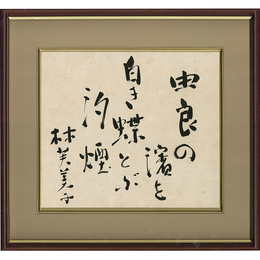 由良の
濱を
白き蝶とぶ
汐煙
林芙美子